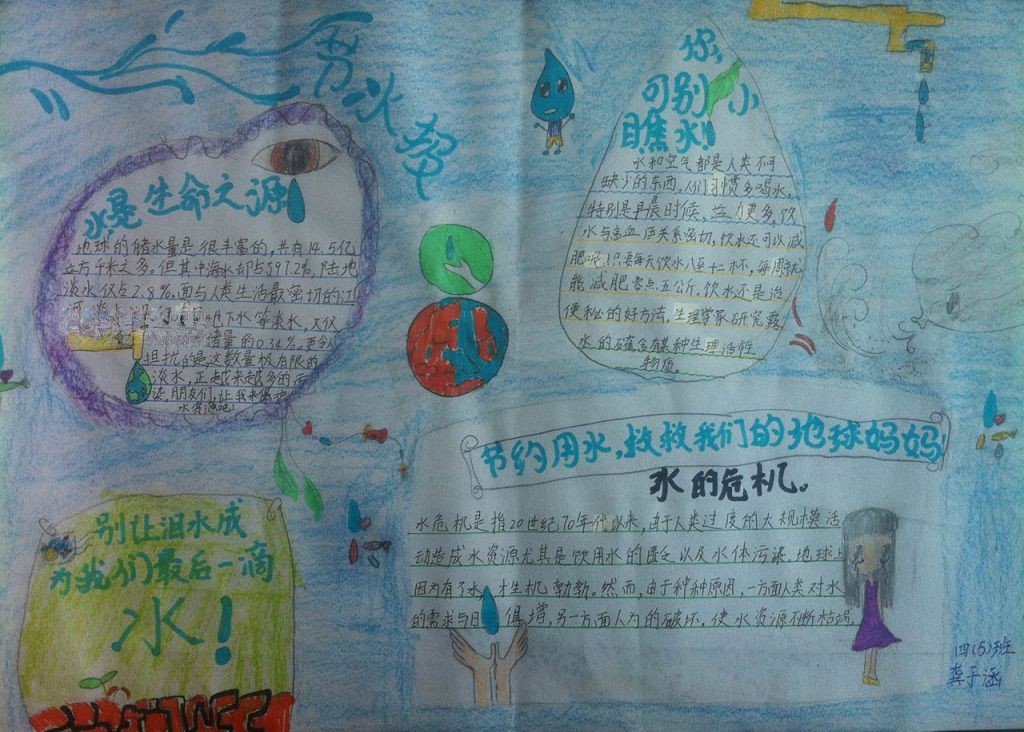 水是生命之源
地球的储水量是很丰富的,共有14.5亿
立方千米之多。但其中海水却占97.2%,陆地
淡水仅占2.8%,而与人类生活最密切的江
河
地下水等淡水,又仅
储量的0.34%。更令人
担扰的是,这数量极有限的
淡水,正越来越多的污
染,朋友们,让我来保护
水资源吧!
你,
可别小
瞧水!
水和空气都是人类不可
缺少的东西,人们习惯多喝水,
特别是早晨时候,应该更多,饮
水与高血压关系密切,饮水还可以减
肥呢!只要每天饮水八至十二杯,每周就
能减肥零点五公斤,饮水还是治
便秘的好方法,生理学家研究露,
水的确含有某种生理活性
物质。
节约用水,救救我们的地球妈妈!
水的危机。
水危机是指20世纪70年代以来,由于人类过度的大规模活
动造成水资源尤其是饮用水的匮乏以及水体污染。地球上
因为有了水,才生机勃勃。然而,由于种种原因,一方面人类对水
的需求与日俱增,另一方面人为的破坏,使水资源不断枯竭,
别让泪水成
为我们最后一滴
水!
四(5)班
龚子涵